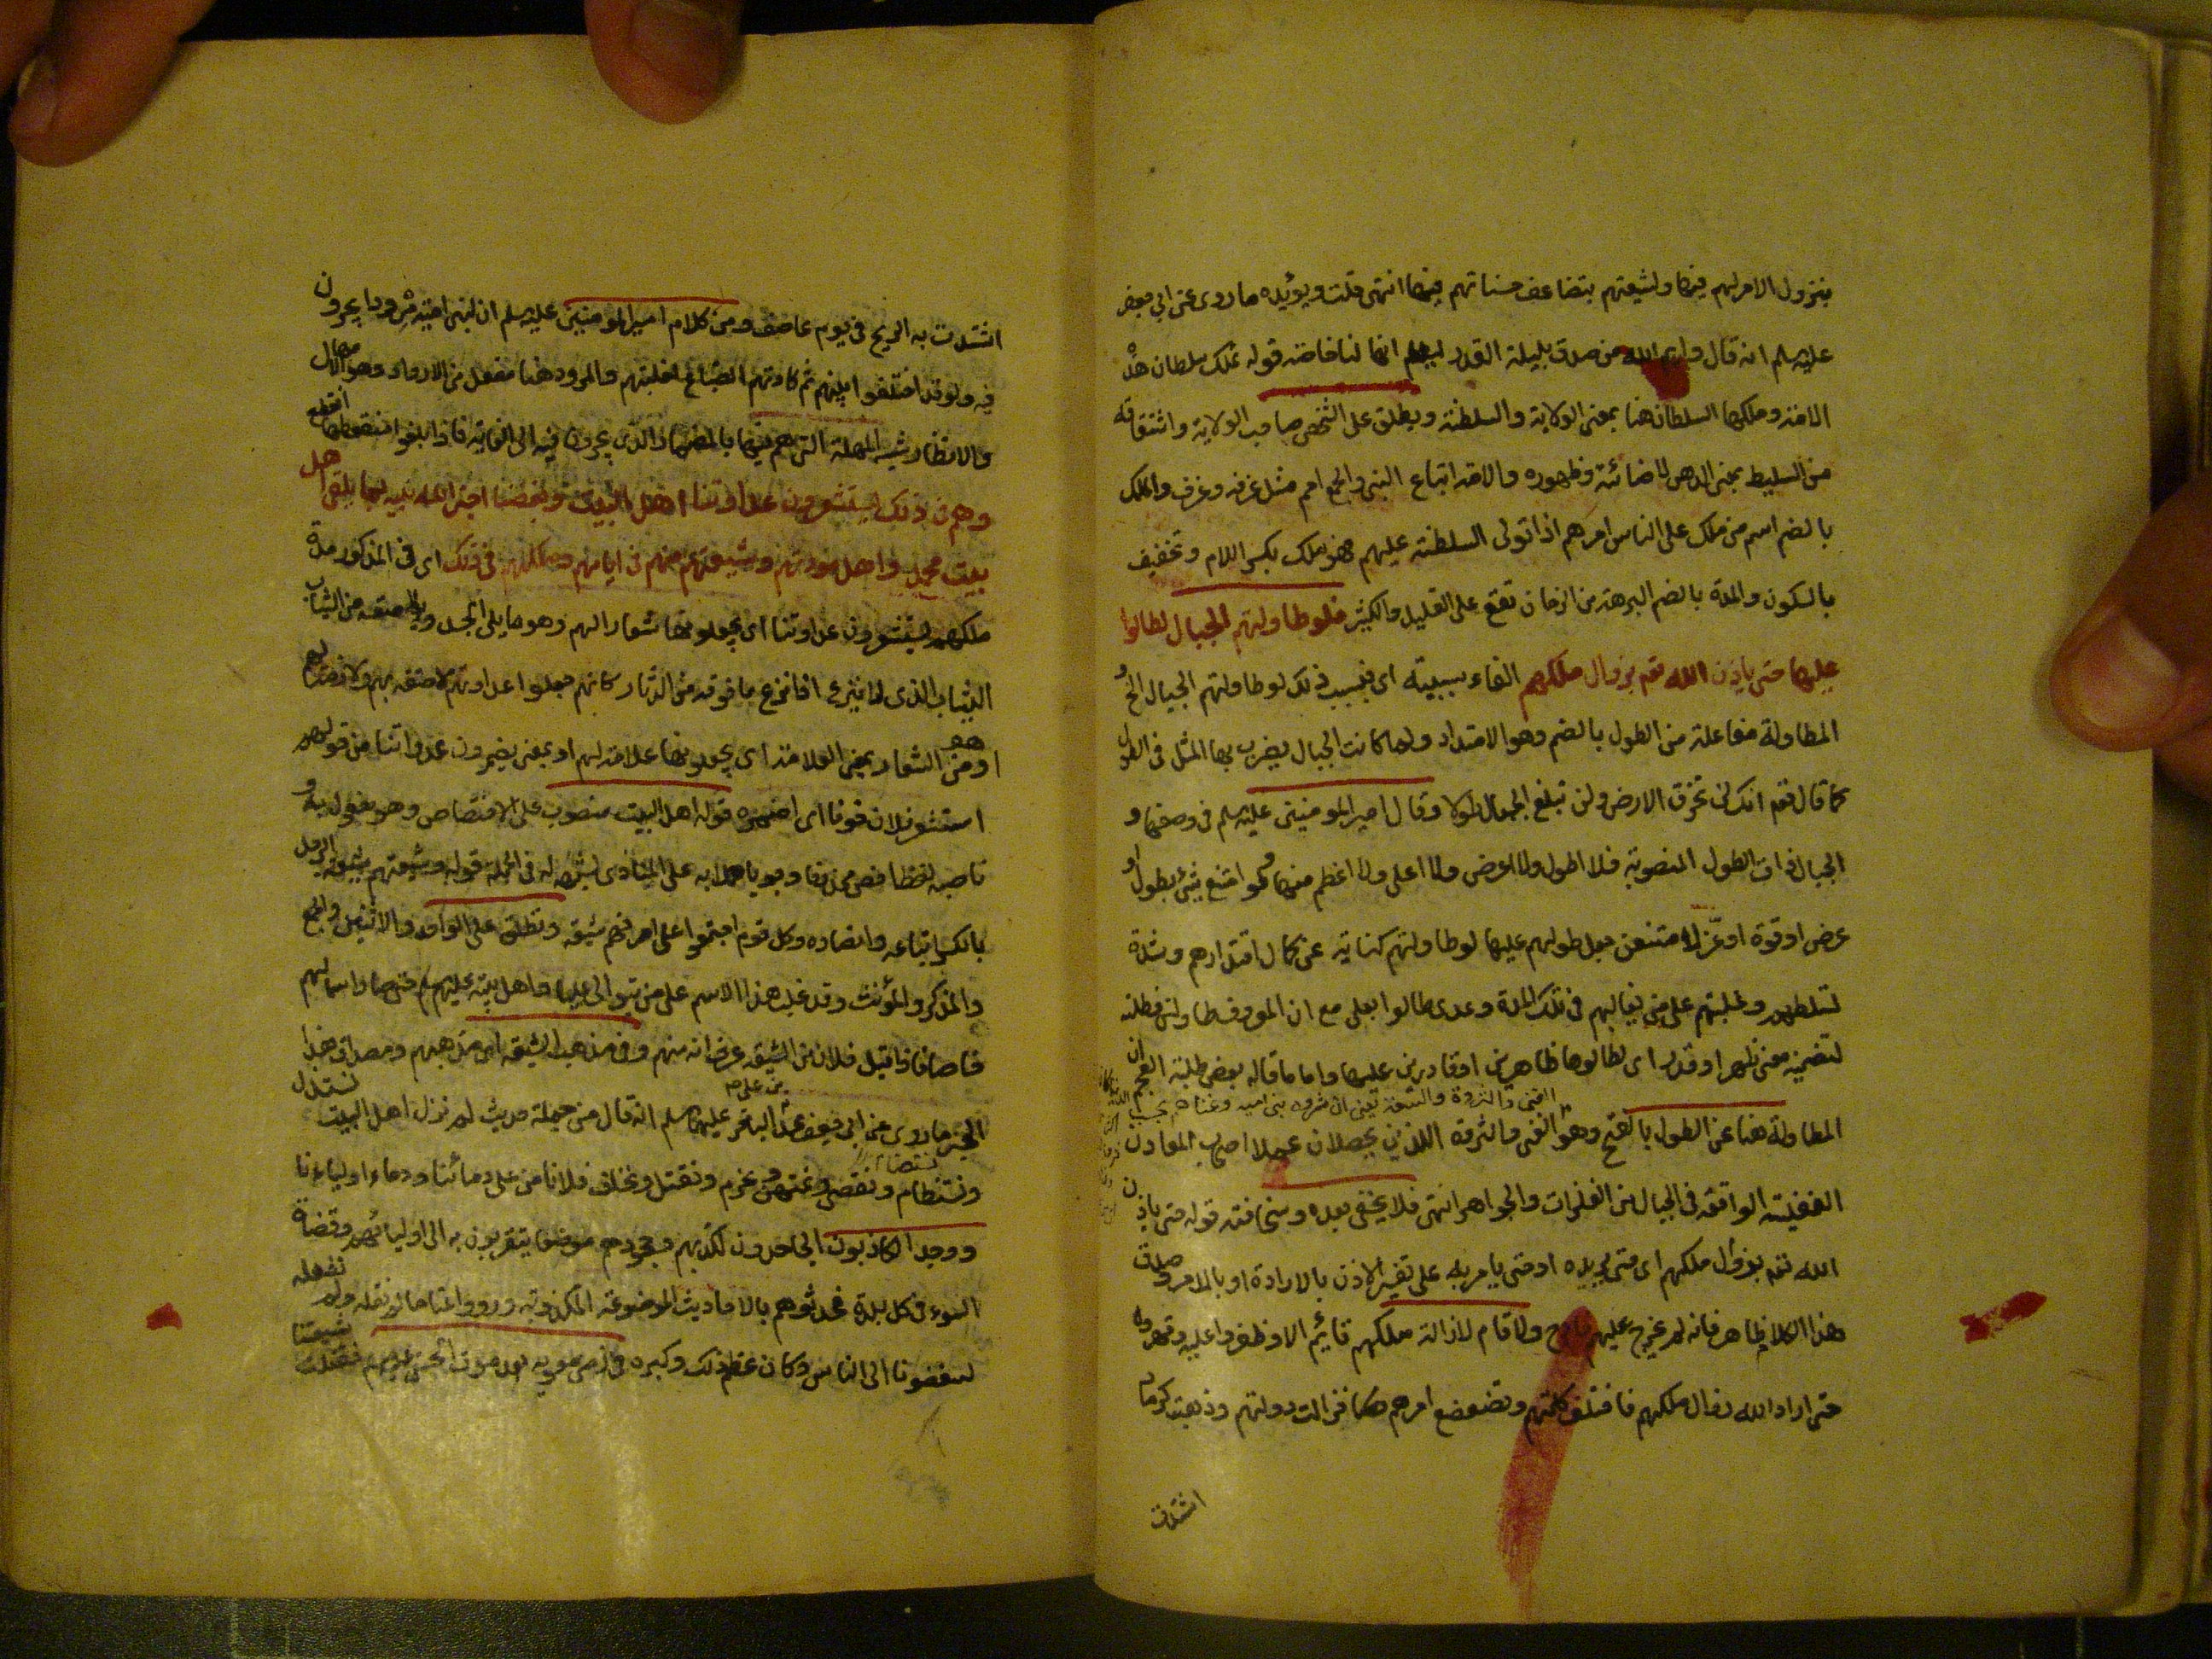 بنزول الامر لهم فيها ولشيعتهم بتضاعف حسناتهم فيها انتهى قلت ويؤيده ما روى عن ابي جعفر
عليه سلم انه قال وايم الله من صدق بليلة القدر ليعلم انها لنا خاصة قوله تملك سلطان هذه
الامة وملكها السلطان هنا بمعنى الولاية والسلطنة ويطلق على الشخص صاحب الولاية واشتقاقه
من السليط بمعنى الدهن لاضائته وظهوره والامة اتباع النبي والجمع امم مثل غرفة وغرف والملك
بالضم اسم من ملك على الناس امرهم اذا تولى السلطنة عليهم فهو ملك بكسر اللام وتخفيف
بالسكون والمدة بالضم البرهة من الزمان تقع على القليل والكثير فلو طاولتهم الجبال لطالوا
عليها حتى ياذن الله تعم بزوال ملكهم الفاء سببية اى فبسبب ذلك لو طاولتهم الجبال الخ و
المطاولة مفاعلة من الطول بالضم وهو الامتداد ولما كانت الجبال يضرب بها المثل فى الطول
كما قال تعم انك لن تخرق الارض ولن تبلغ الجبال طولا وقال امير المومنين عليه سلم فى وصفها و
الجبال ذات الطول المنصوبة فلا اطول ولا اعرض ولا اعلى ولا اعظم منها ولو امتنع شئ بطول او
عرض او قوة او عز لامتنعن جعل طولهم عليها لو طاولتهم كناية عن كمال اقتدارهم وشدة
تسلطهم وغلبتهم على من يغالبهم فى تلك المدة وعدى طالوا بعلى مع ان المعروف طاولنى فطلته
لتضمينه معنى ظهر او قدر اى لطالوها ظاهرين او قادرين عليها واما ما قاله بعض طلبة العجم ان
الغنى والثروة والسعة يعنى ان ثروة بنى امية وغناهم بحيث
المطاولة هنا من الطول بالفتح وهو الغنى والثروة اللذين يحصلان عملا اصحاب المعادن
الواقعة فى الجبال من الفلزات والجواهر انتهى فلا يخفى بعده وسخافته قوله حتى ياذن
الله تعم بزوال ملكهم اى حتى يريده او حتى يامر به على تفسير الاذن بالارادة او بالامر وصدق
هذا الكلام ظاهر فانه لم يخرج عليهم خارج ولا قام لازالة ملكهم قايم الا وظفروا عليه وقهروه
حتى اراد الله زوال ملكهم فاختلف كلمتهم وتضعضع امرهم هكذا فزالت دولتهم وذهبت كرماد
اشتدت
اشتدت به الريح فى يوم عاصف ومن كلام امير المومنين عليه سلم ان لبنى امية مرودا يجرون
فيه ولو قد اختلفوا بينهم ثم كادتهم الضباع لغلبتهم والمرود هنا مفعل من الارواد وهو الامهال
والانظار شبه المهلة التى هم فيها بالمضمار الذى يجرون فيه الى الغاية فاذا بلغوا منقطعها انتقض
وهم فى ذلك يستشعرون عداوتنا اهل البيت وبغضنا اخبر الله نبيه بما يلقى اهل
بيت محمد واهل مودتهم وشيعتهم منهم فى ايامهم وملكهم فى ذلك اى فى المذكور مدة
ملكهم يستشعرون عداوتنا اى يجعلونها شعارا لهم وهو ما يلى الجسد ويلاصقه من الثياب
الثياب الذى لا ينزع اذا نزع ما فوقه من الدثار كانهم جعلوا عداوتهم لاصقة بهم
او من الشعار بمعنى العلامة اى يجعلونها علامة لهم او بمعنى يضمرون عداوتنا من قولهم
استشعر فلان خوفا اى اضمره قوله اهل البيت منصوب على الاختصاص وهو مفعول به و
ناصبه لفظ اخص محذوفا وجوبا حملا به على المنادى قوله وشيعتهم شيعة الرجل
بالكسر اتباعه وانصاره وكل قوم اجتمعوا على امر فهم شيعة وتطلق على الواحد والاثنين والجمع
والمذكر والمؤنث وقد غلب هذا الاسم على من تولى عليا واهل بيته عليهم سلم حتى صار اسما لهم
خاصا فاذا قيل فلان من الشيعة عرف انه منهم وفى مذهب الشيعة اى مذهبهم ومصداق هذا
الخبر ما روى عن ابى جعفر محمد بن على الباقر عليهما سلم انه قال من جملة حديث لم نزل اهل البيت نستذل
ونستضام ونقصى ونمتهن ونحرم ونقتل ونخاف فلا نامن على دمائنا ودماء اوليائنا
ووجد الكاذبون الجاحدون لكذبهم وجحودهم موضعا يتقربون به الى اوليائهم وقضاة
السوء فى كل بلدة فحدثوهم بالاحاديث الموضوعة المكذوبة ورووا عنا ما لم نقله ولم نفعله
ليبغضونا الى الناس وكان عظم ذلك وكبره فى زمن معوية بعد موت الحسن عليه سلم فقتلت شيعتنا